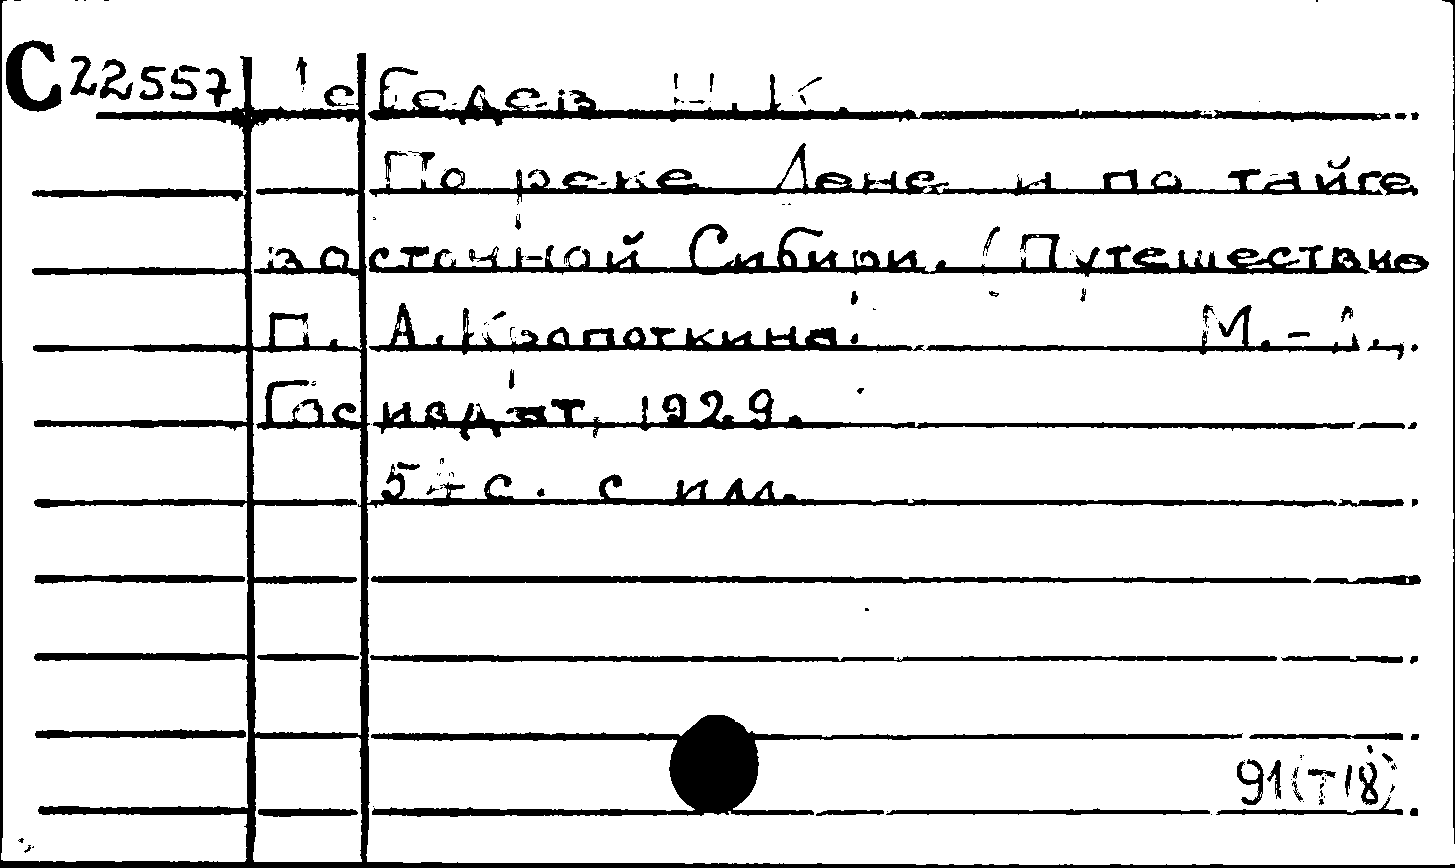 С 22557 Лебедев Н. К.
По реке Лене и по тайге
восточной Сибири. (Путешествие
П. А. Кропоткина. М.-Л.,
Госиздат, 1929.
54 с. с илл.
91(Т18)